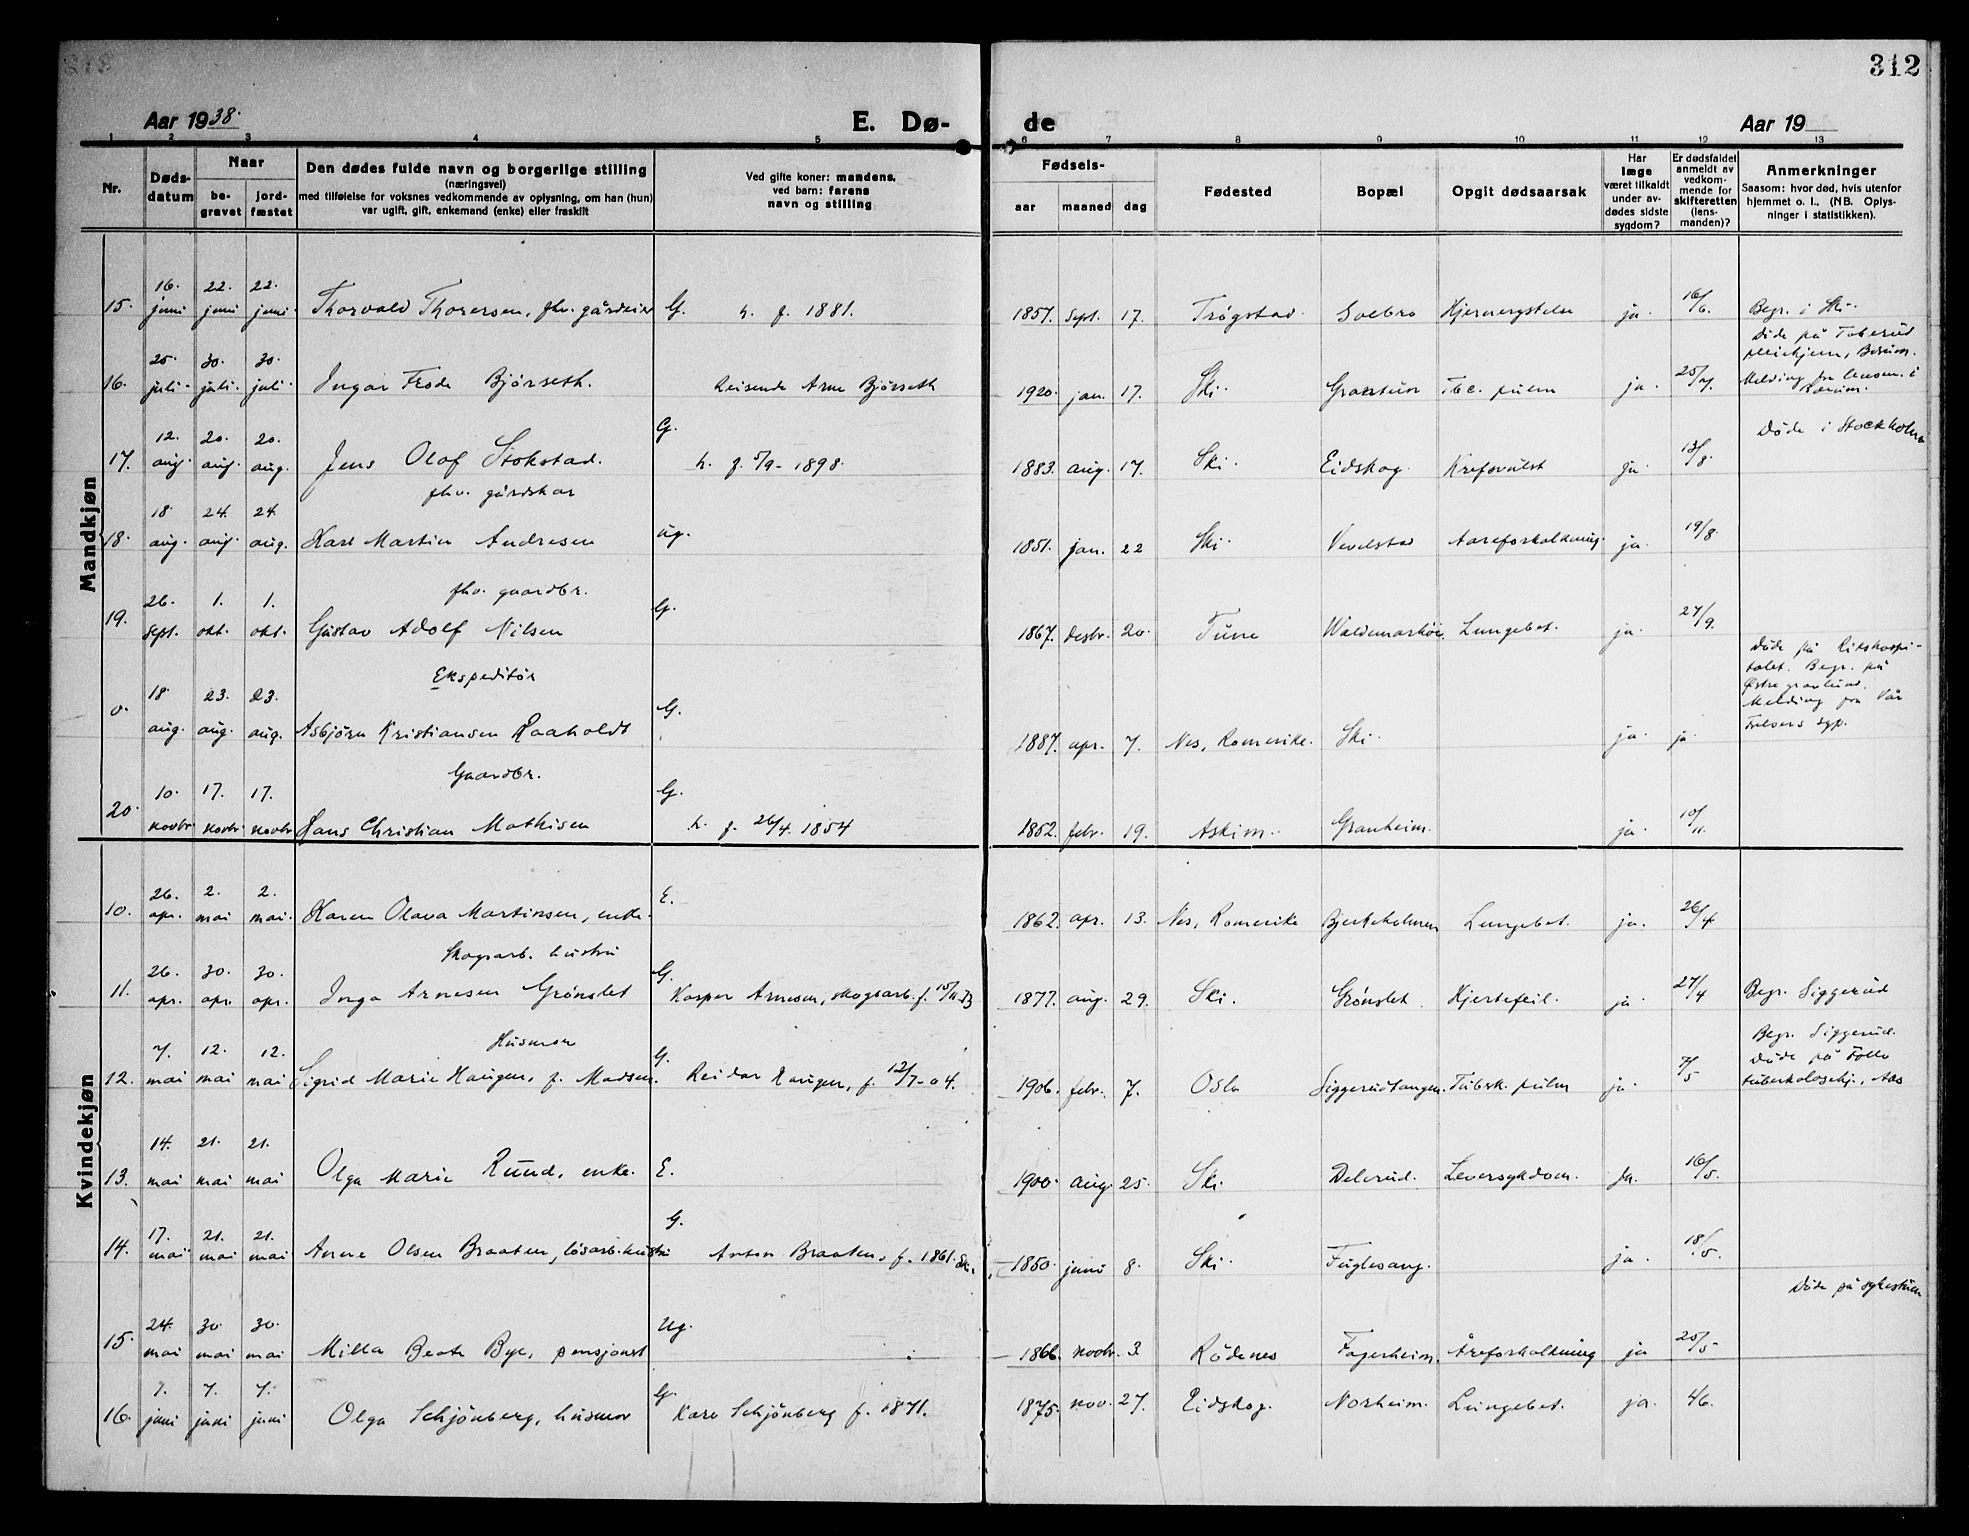 312
Aar 1938.
E. Dø-
de
Aar 19
1 2 3 4 5 6 7 8 9 10 11 12 13
Nr.
Døds-
datum
Naar
be-
gravet
jord-
fæstet
Den dødes fulde navn og borgerlige stilling
(næringsvei)
med tilføielse for voksnes vedkommende av oplysning, om han (hun)
var ugift, gift, enkemand (enke) eller fraskilt
Ved gifte koner: mandens,
ved barn: farens
navn og stilling
Fødsels-
aar maaned dag
Fødested
Bopæl
Opgit dødsaarsak
Har
læge
været tilkaldt
under av-
dødes sidste
sygdom?
Er dødsfaldet
anmeldt av
vedkom-
mende for
skifteretten
(lens-
manden)?
Anmerkninger
Saasom: hvor død, hvis utenfor
hjemmet o. l., (NB. Oplys-
ninger i statistikken).
Mandkjøn
16. 22. 22.
15. juni juni juni. Thorvald Thoresen, fhv. gårdeier G. h. f. 1881. 1857. sept. 17. Trøgstad. Solbro Hjernerystelse ja. 16/6. Begr. i Ski.
Døde på Taberud
pleiehjem, Bærum.
25. 30. 30.
16. juli. juli. juli. Ingar Frode Bjørseth. Reisende Arne Bjørseth 1920. jan. 17. Ski. Grantun Tbc. pulm ja. 25/7. Melding fra lensm. i
Bærum.
12. 20. 20. G. Døde i Stockholm
17. aug. aug. aug. Jens Olaf Stokstad. h. f. 5/9-1898. 1883. aug. 17. Ski. Eidskog. Kreftsvulst ja. 13/8.
fhv. gårdskar
18. 24. 24.
18. aug. aug. aug. Karl Martin Andresen ug. 1851. jan. 22 Ski Vevelstad Aareforkalkning. ja. 19/8.
fhv. gaardbr.
26. 1. 1. G.
19. sept. okt. okt. Gustav Adolf Nilsen 1867. desbr. 20. Tune Waldemarhøi. Lungebet. ja. 27/9.
Ekspeditør
Døde på Rikshospi-
talet. Begr. på
Østre gravlund.
Melding fra Vår
Frelsers sgp.
18. 23. 23. G.
0. aug. aug. aug. Asbjørn Kristiansen Raaholdt 1887. apr. 7. Nes, Romerike. Ski. ja. ja
Gaardbr.
10. 17. 17. G.
20. novbr. novbr. novbr. Hans Christian Mathisen h. f. 26/4. 1854 1852. febr. 19. Askim. Granheim. ja. 10/11.
Kvindekjøn
26. 2. 2. E.
10. apr. mai mai. Karen Olava Martinsen, enke. 1862. apr. 13. Nes, Romerike Bjerkeholmen Lungebet. ja. 26/4.
Skogsarb. hustru
26. 30. 30. G.
11. apr. apr. apr. Inga Arnesen Grønslet Kasper Arnesen, skogsarb. f. 15/11 73 1877. aug. 29. Ski. Grønslet. Hjertefeil. ja 27/4 Begr. Siggerud
Husmor
7. 12. 12. G.
Begr. Siggerud.
Døde på Follo
tuberkulosehj., Aas
12. mai mai mai Sigrid Marie Haugen, f. Madsen. Reidar Haugen, f. 12/7-04. 1906. febr. 7. Oslo Siggerudtangen. Tuberk. pulm ja. 7/5
14. 21. 21.
13. mai mai mai Olga Marie Ruud, enke. E. 1900. aug. 25. Ski. Delerud. Leversykdom. ja. 16/5.
17. 21. 21. G.
14. mai mai mai Anne Olsen Braaten, løsarb. hustru Anton Braaten, f. 1861. Ski. 1850. juni 8. Ski. Fuglesang. ja. 18/5.
Døde på sykestuen
24. 30. 30. Ug.
15. mai mai mai Milla Beate Bye, pensjonist 1866. novbr. 3. Rødenes Fagerheim. Åreforkalkning ja 25/5
7. 7. G.
16. juni juni juni Olga Schjønberg, husmor Karl Schjønberg f. 1871. 1875. nov. 27. Eidskog. Norheim. Lungebet. ja. 4/6.